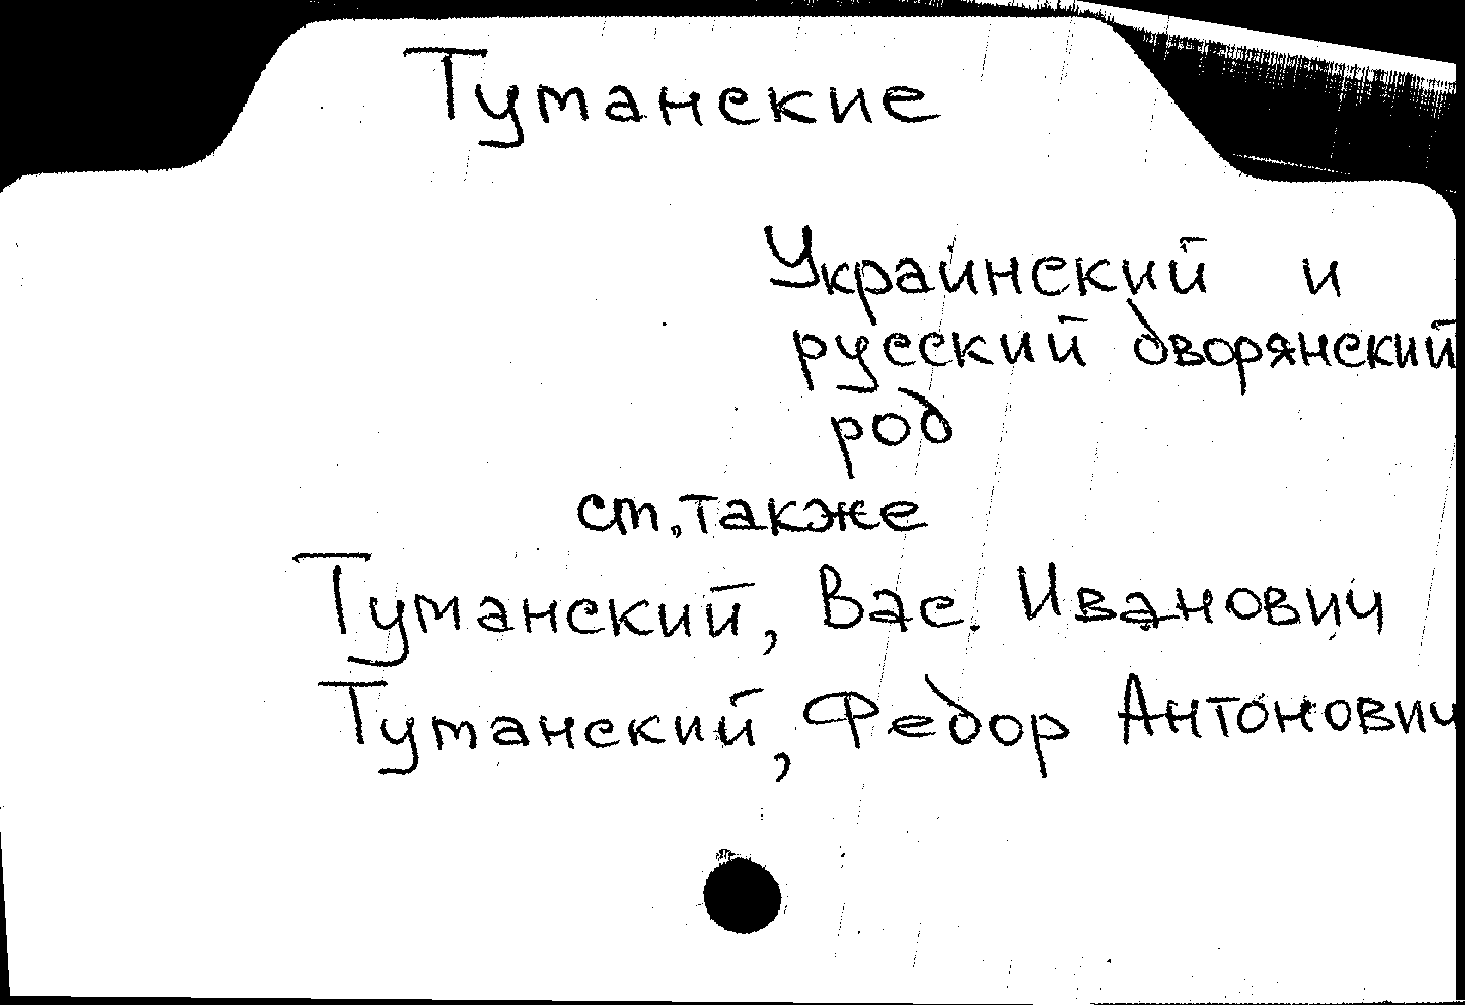 Туманские
Украинский и
русский дворянский
род
ст. также
Туманский, Вас. Иванович
Туманский, Федор Антонович